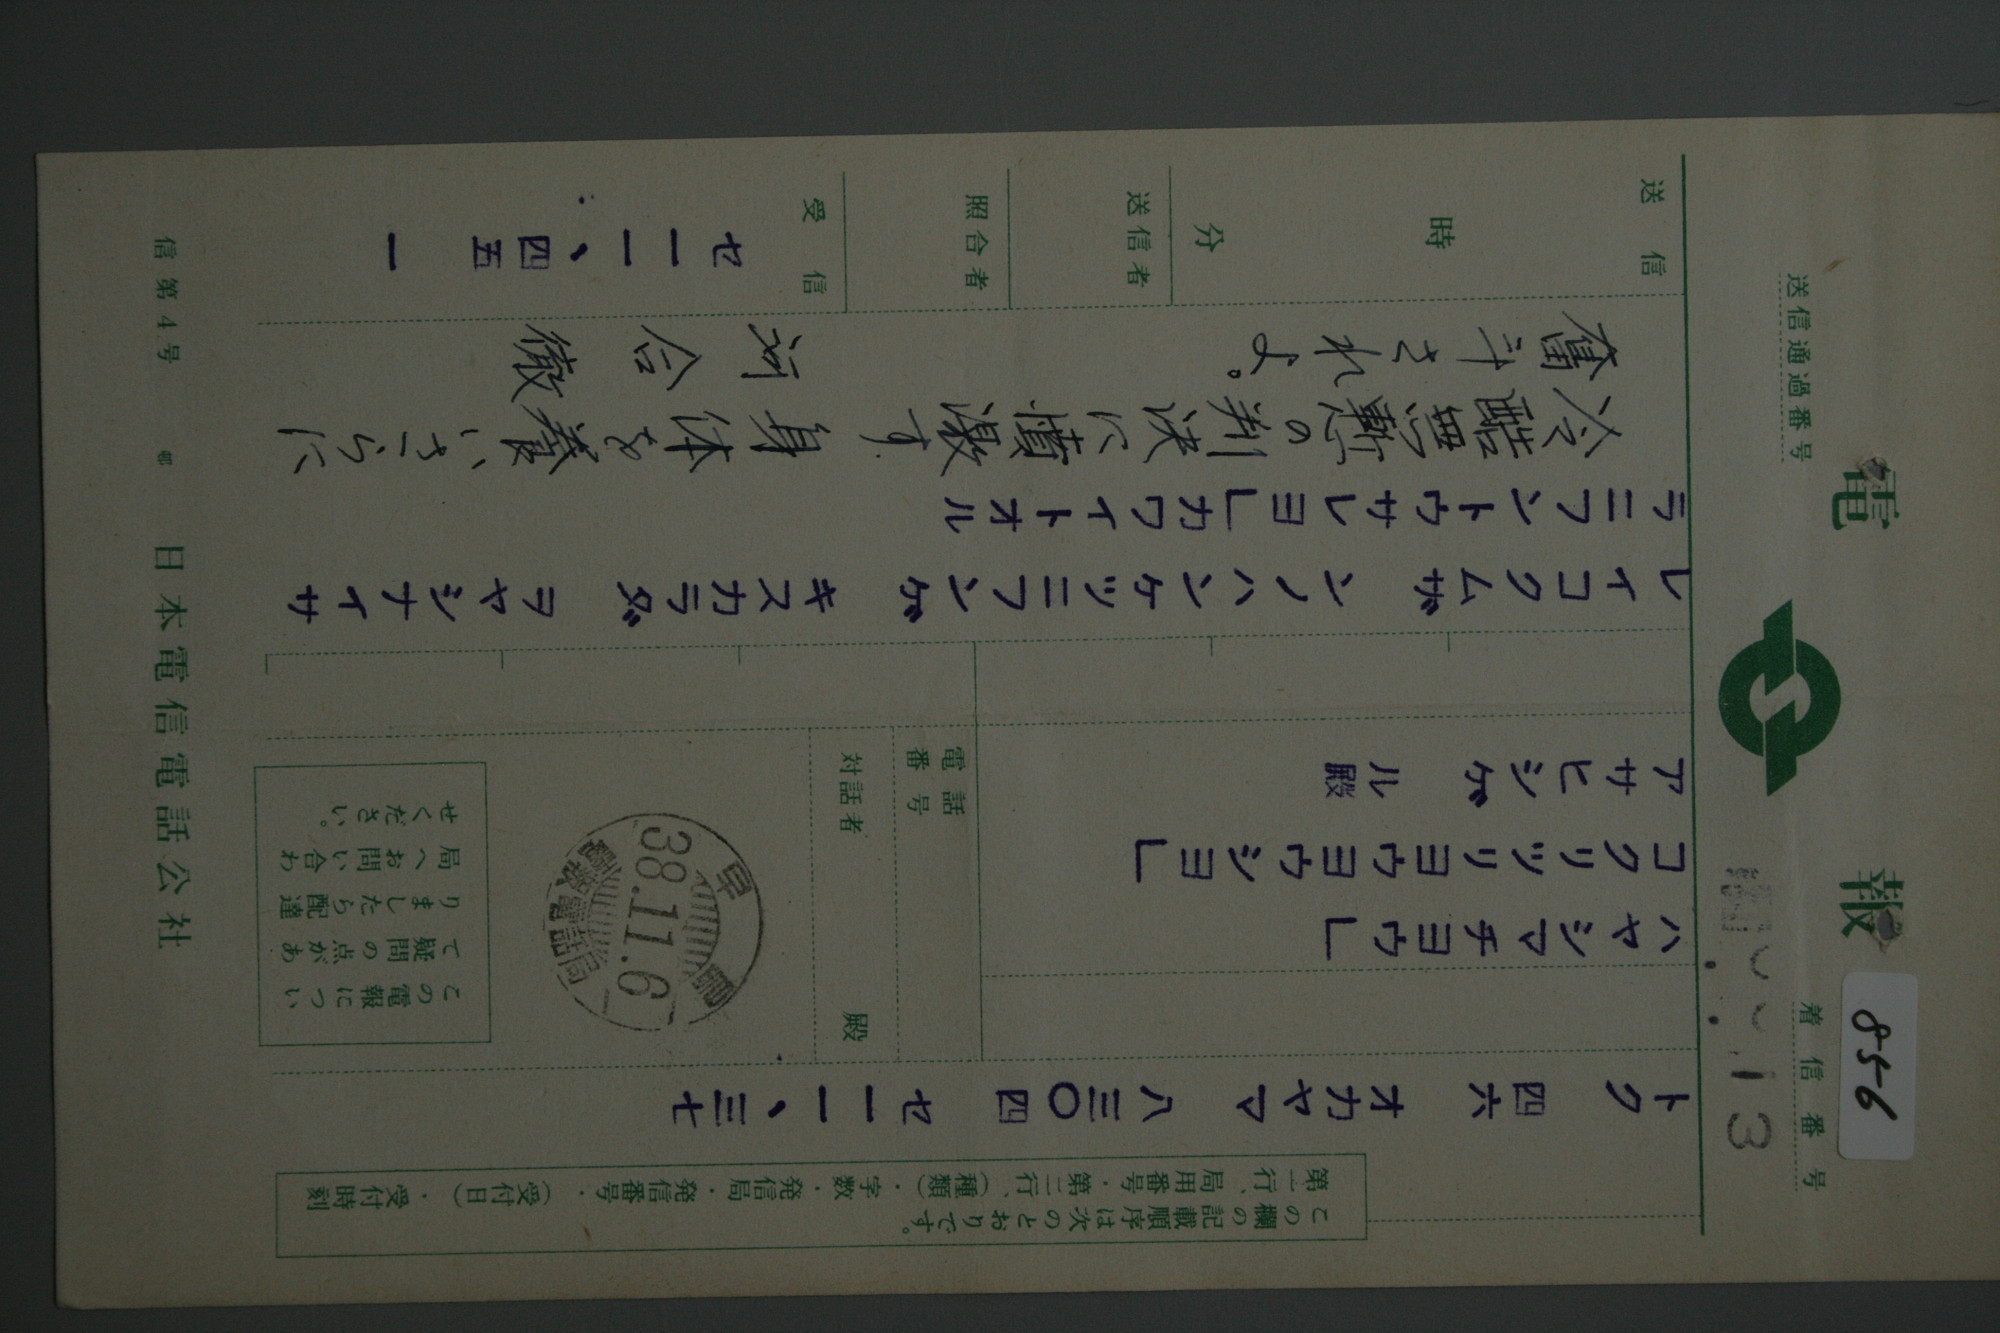 電報
着信番号
送信通過番号
856
13
この欄の記載順序は次のとおりです。
第一行、局用番号・第二行、(種類)・字数・発信局・発信番号・(受付日)・受付時刻
トク 四六 オカヤマ 八三〇四 セ一一、三七
ハヤシマチヨウ」
コクリツリヨウヨウシヨ」
アサヒシゲル殿
電話番号
対話者 殿
早島
38.11.6
電報電話局
この電報につい
て疑問の点があ
りましたら配達
局へお問い合わ
せください。
レイコクムザンノハンケツニフンゲキスカラダヲヤシナイサ
ラニフントウサレヨ」カワイトオル
冷酷無慙の判決に憤激す 身体を養いさらに
奮斗されよ。 河合徹
送信 時 分
送信者
照合者
受信
セ一一、四五 一
信第4号 日本電信電話公社